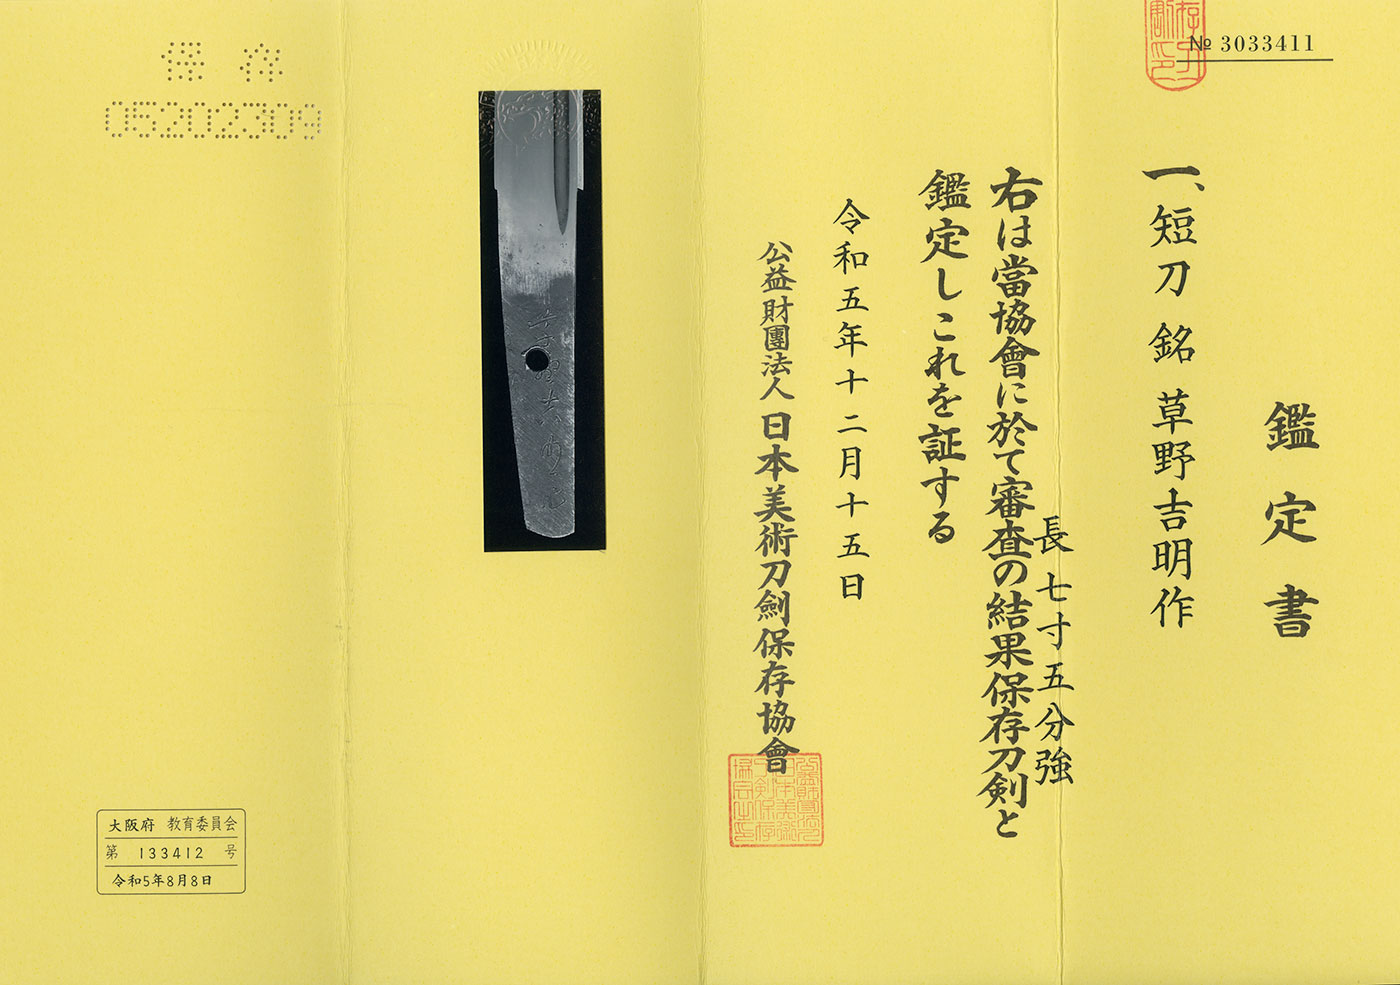 № 3033411
鑑定書
一、短刀 銘 草野吉明作
長七寸五分強
右は當協會に於て審査の結果保存刀剣と
鑑定しこれを証する
令和五年十二月十五日
公益財團法人 日本美術刀劍保存協會
保存
05202309
大阪府 教育委員会
第 133412 号
令和5年8月8日